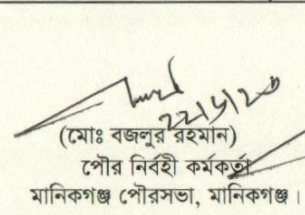 (মোঃ বজলুর রহমান)
পৌর নির্বহী কর্মকর্তা
মানিকগঞ্জ পৌরসভা, মানিকগঞ্জ।